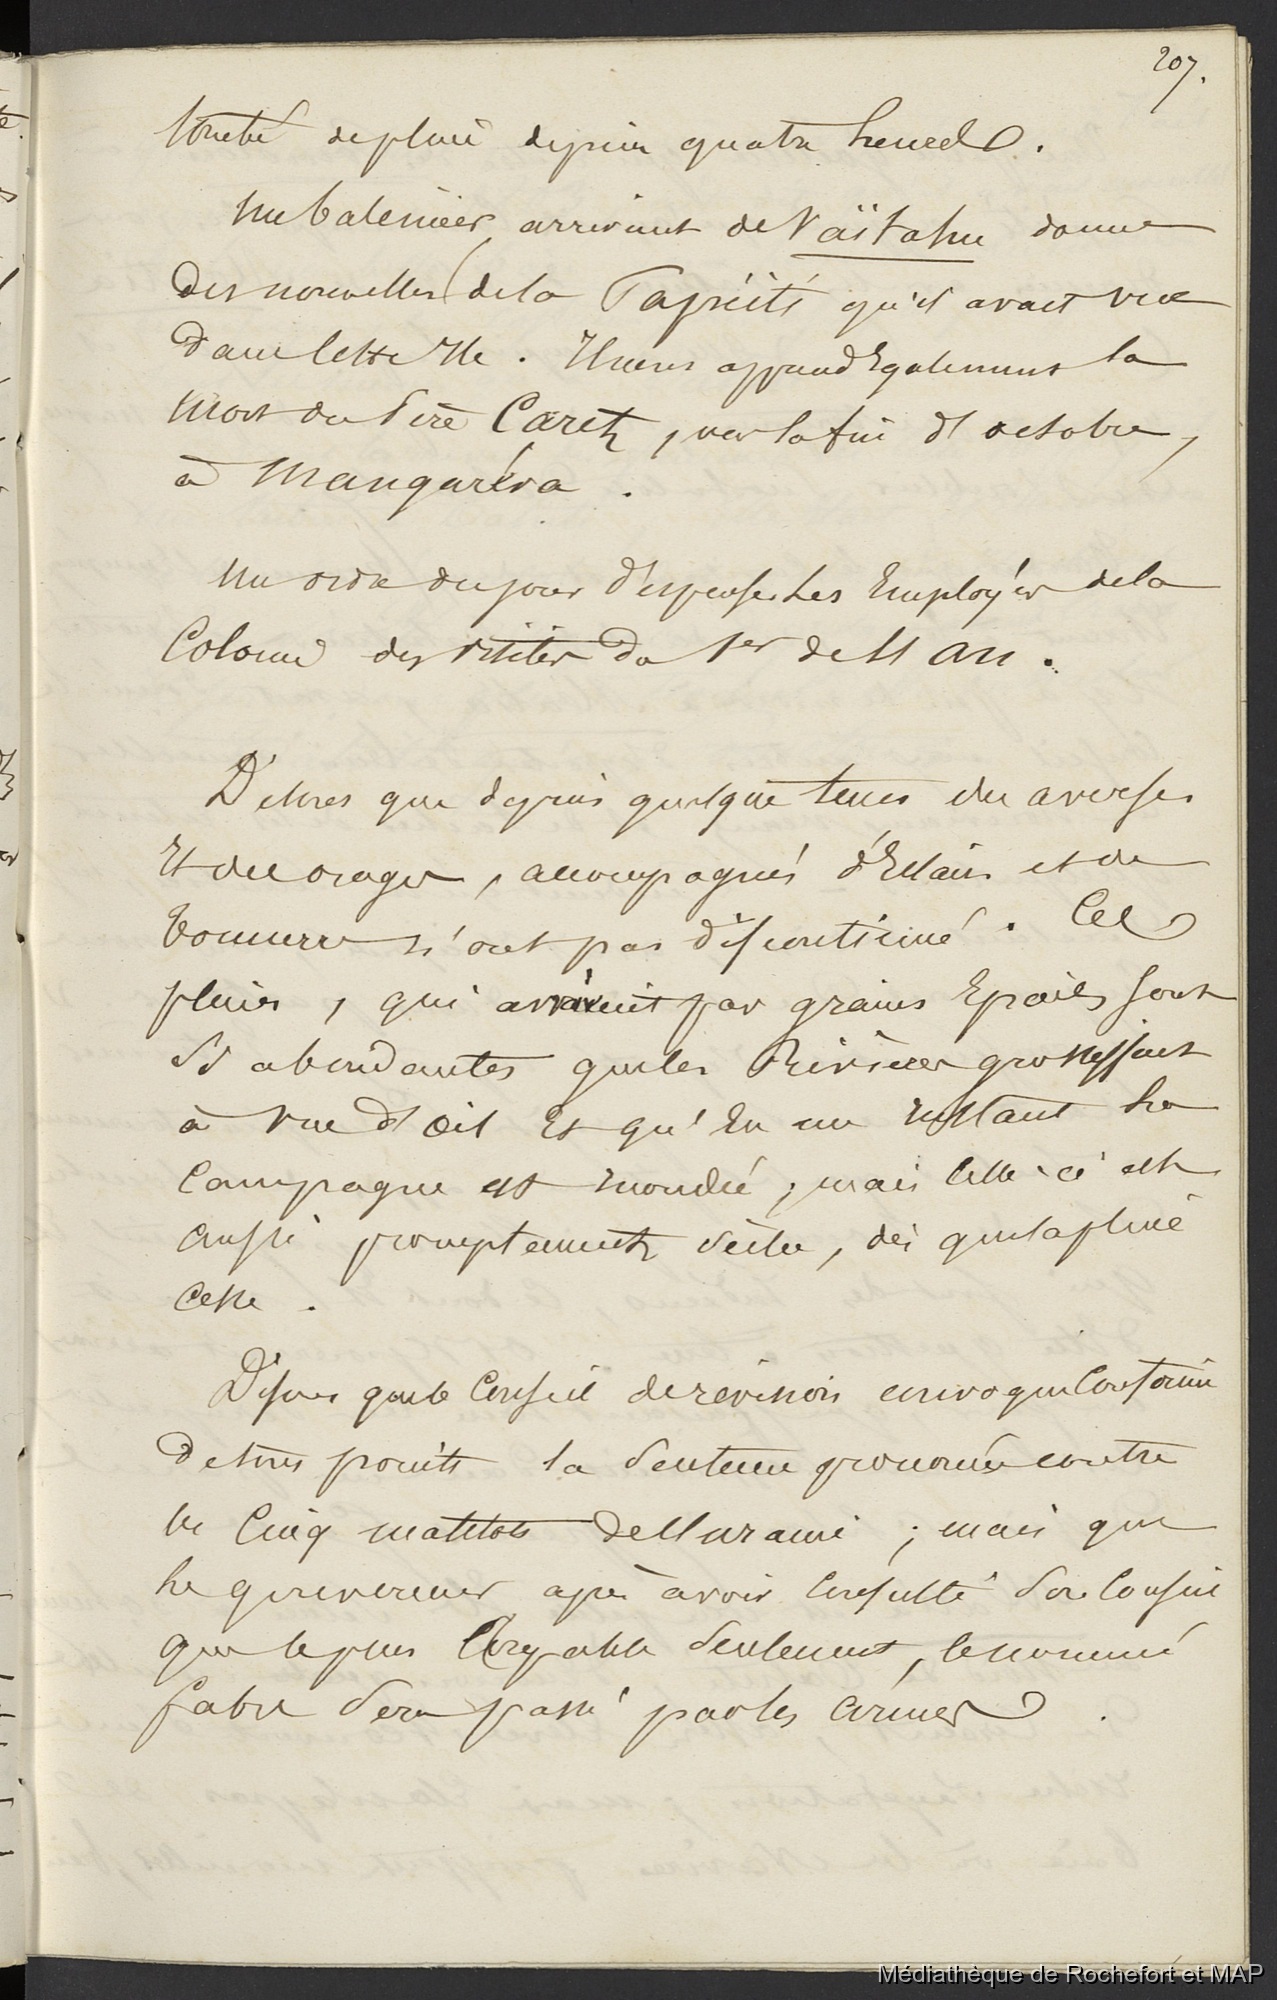 207.
tombé de pluie depuis quatre heures.
Un baleinier, arrivant de Vaïtahu donne
des nouvelles de la Papéïti qu'il avait vue
dans cette Ile. Il nous apprend Egalement la
mort du Père Caret, vers la fin d'octobre,
à Mangaréva.
Un ordre du jour dispense les Employés de la
Colonie des visites du 1er de l'an.
Disons que depuis quelque tems des averses
Et des orages, accompagnés d'Eclairs et de
tonnerre n'ont pas discontinué. Ces
pluies, qui arrivent par grains Epais, sont
si abondantes que les Rivières grossissent
à vue d'œil Et qu'en un instant la
campagne est inondée ; mais celle-ci est
aussi promptement sèche, dès que la pluie
cesse.
Disons que le Conseil de révision convoqué confirme
de tous points la sentence prononcée contre
les cinq matelots de l'Uranie ; mais que
le gouverneur après avoir consulté son Conseil
que le plus coupable seulement, le nommé
fabre sera passé par les armes.
Médiathèque de Rochefort et MAP